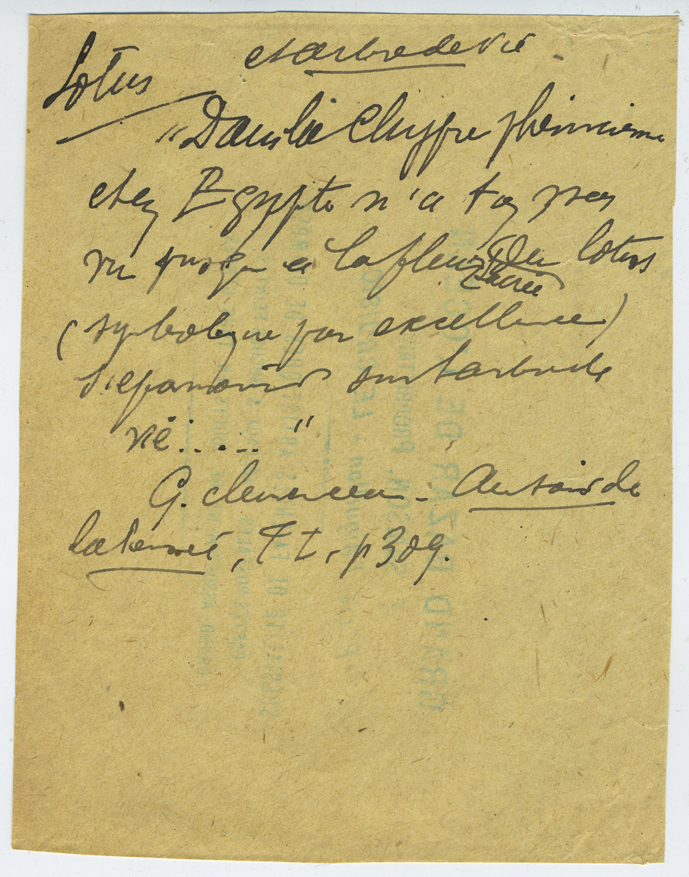 Lotus et arbre de vie
"Dans la Chypre phénicienne
chez Egypte n'a t on pas
vu jusqu'à la fleur du lotus
sacrée
(symbolique par excellence)
s'épanouir sur l'arbre de
vie..... "
G. Clemenceau - Au soir de
la Pensée, T I, p 309.
GRAND BAZAR DE